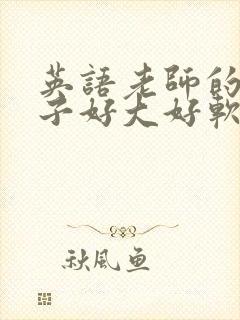 英語老師的
子好大好軟
秋風魚